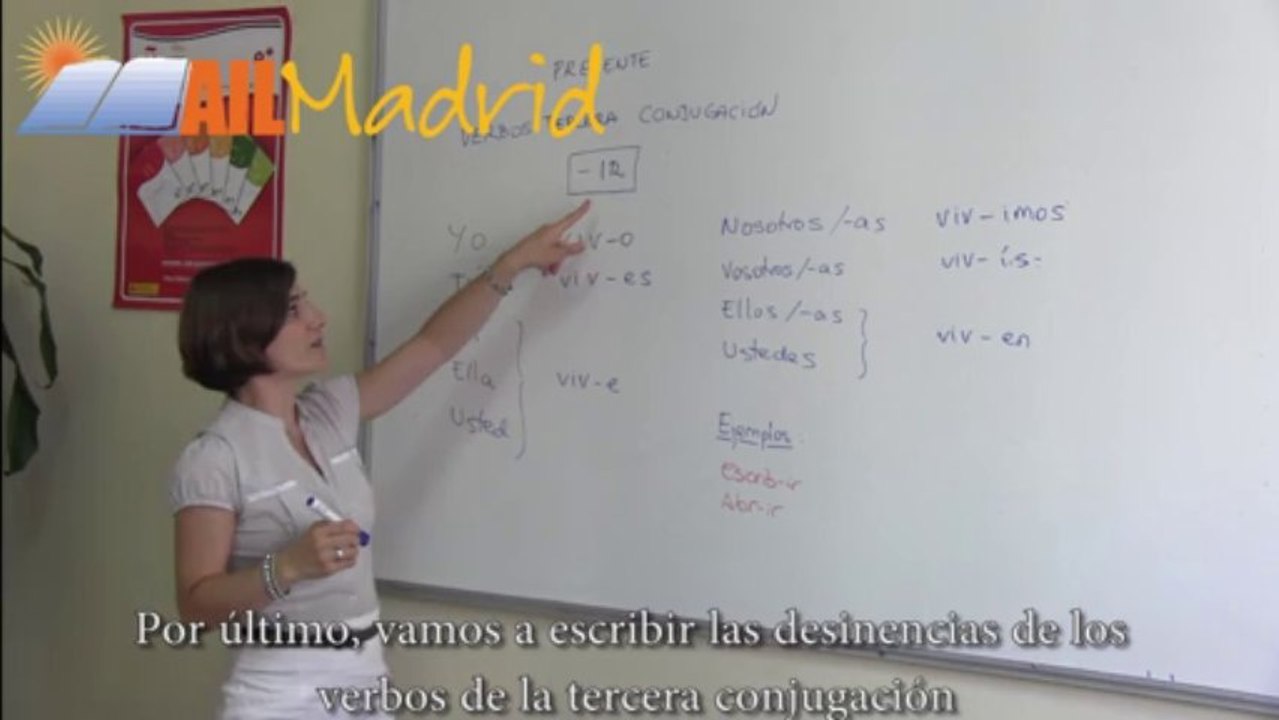 AILMadrid
PRESENTE
VERBOS TERCERA CONJUGACIÓN
-IR
Yo viv-o
viv-es
Ella
Usted
viv-e
Nosotros/-as viv-imos
Vosotros/-as viv-ís
Ellos/-as
Ustedes
viv-en
Ejemplos
escrib-ir
Abr-ir
Por último, vamos a escribir las desinencias de los
verbos de la tercera conjugación